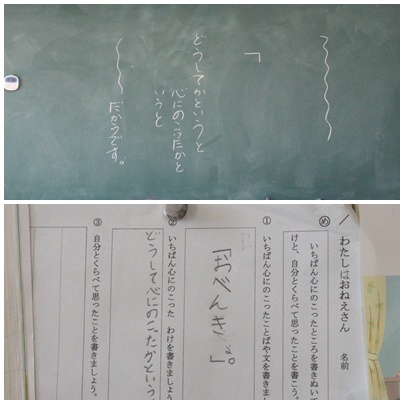 「
どうしてかというと
心にのこったかと
いうと
だからです。
わたしはおねえさん 名前
め いちばん心にのこったところを書きぬいて
けと、自分とくらべて思ったことを書こう。
① いちばん心にのこったことばや文を書きま
「おべんきょ。」
② いちばん心にのこった わけを書きましょう
どうして心にのこったかという
③ 自分とくらべて思ったことを書きましょう。